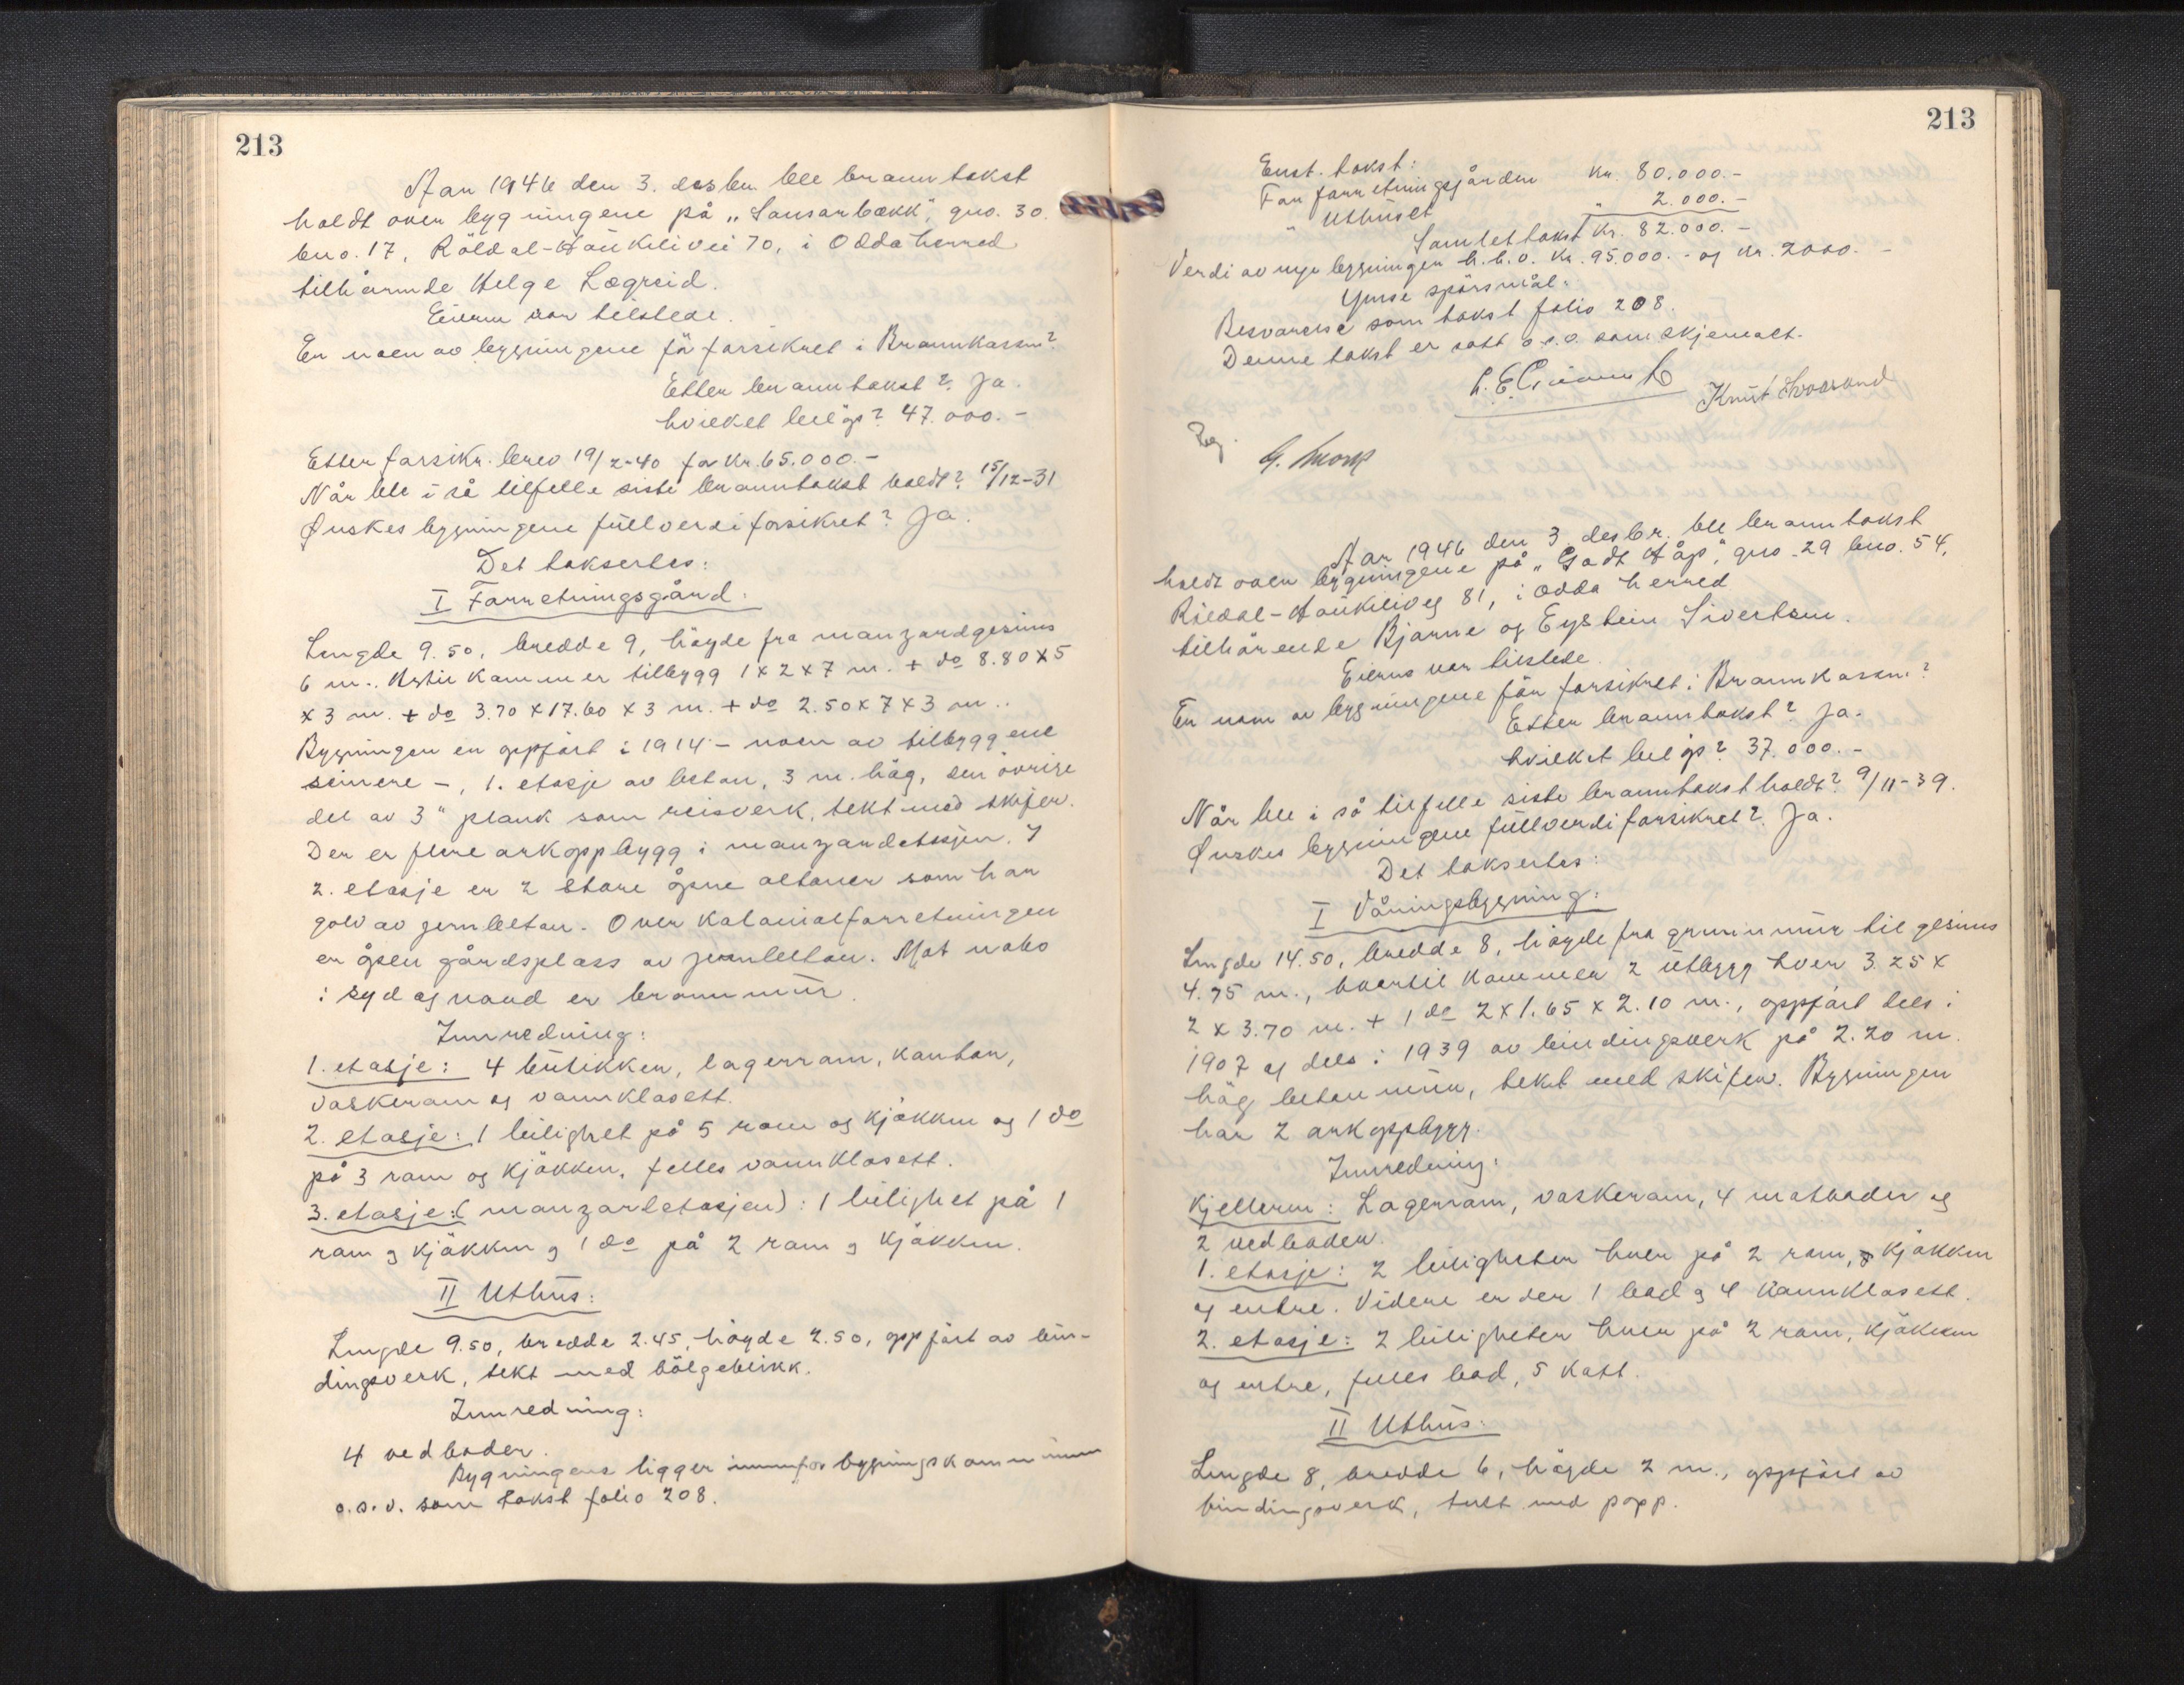 213
Aar 1946 den 3. desbr. ble branntakst
holdt over bygningene på „Sansarbækk", gno. 30.
bno. 17, Röldal-Haukelivei 70, i Odda herred
tilhørende Helge Lægreid.
Eieren var tilstede.
Er noen av bygningene för forsikret i Brannkassen?
Etter branntakst? Ja.
hvilket beløp? 47.000.-
Etter forsikr. brev 19/2-40 for kr. 65.000.-
Når ble i så tilfelle siste branntakst holdt? 15/12-31
Ønskes bygningene fullverdiforsikret? Ja.
Det taksertes:
I Forretningsgård:
Lengde 9.50, bredde 9, höyde fra manzardgesims
6 m.. Hertil kommer tilbygg 1 x 2 x 7 m. + do 8.80 x 5
x 3 m. + do 3.70 x 17.60 x 3 m. + do 2.50 x 7 x 3 m..
Bygningen er oppført i 1914 - noen av tilbyggene
seinere -, 1. etasje av beton, 3 m. høg, den övrige
del av 3" plank som reisverk, tekt med skifer.
Der er flere arkoppbygg i manzardetasjen. I
2. etasje er 2 store åpne altaner som har
golv av jernbeton. Over kolonialforretningen
er åpen gårdsplass av jernbeton. Mot nabo
i syd og nord er brannmür.
Innredning:
1. etasje: 4 butikker, lagerrom, kontor,
vaskerom og vannklosett.
2. etasje: 1 leilighet på 5 rom og kjøkken og 1 do
på 3 rom og kjøkken, felles vannklosett.
3. etasje: (manzardetasjen): 1 leilighet på 1
rom og kjøkken og 1 do på 2 rom og kjøkken.
II Uthus:
Lengde 9.50, bredde 2.45, höyde 2.50, oppført av bin-
dingsverk, tekt med bölgeblikk.
Innredning:
4 vedboder.
Bygningene ligger innenfor bygningskommunen
o.s.v. som takst folio 208.
213
Enst. takst:
For forretningsgården kr. 80.000.-
" Uthuset " 2.000.-
Samlet takst kr. 82.000.-
Verdi av nye bygninger h.h.v. kr. 95.000.- og kr. 2000.-
Ymse spörsmål:
Besvarelse som takst folio 208.
Denne takst er satt o.s.v. som skjemaet.
Knut
Reg.
Aar 1946 den 3. desbr. ble branntakst
holdt over bygningene på „Godt Håp", gno. 29 bno. 54,
Röldal-Haukeliveg 81, i Odda herred
tilhörende Bjarne og Eystein Sivertsen.
Eierne var tilstede.
Er noen av bygningene för forsikret i Brannkassen?
Etter branntakst? Ja.
hvilket beløp? 37.000.-
Når ble i så tilfelle siste branntakst holdt? 9/11-39.
Ønskes bygningene fullverdiforsikret? Ja.
Det taksertes:
I Våningsbygning:
Lengde 14.50, bredde 8, höyde fra grunnmür til gesims
4.75 m., hvortil kommer 2 utbygg hver 3.25 x
2 x 3.70 m. + 1 do 2 x 1.65 x 2.10 m., oppført dels i
1907 og dels i 1939 av bindingsverk på 2.20 m.
høg betonmür, tekt med skifer. Bygningen
har 2 arkoppbygg.
Innredning:
Kjelleren: Lagerrom, vaskerom, 4 matboder og
2 vedboder.
1. etasje: 2 leiligheter hver på 2 rom, kjøkken
og entre. Videre er der 1 bad og 4 vannklosett.
2. etasje: 2 leiligheter hver på 2 rom, kjøkken
og entre, felles bad, 5 kott.
II Uthus:
Lengde 8, bredde 6, høyde 2 m., oppført av
bindingsverk, tekt med papp.